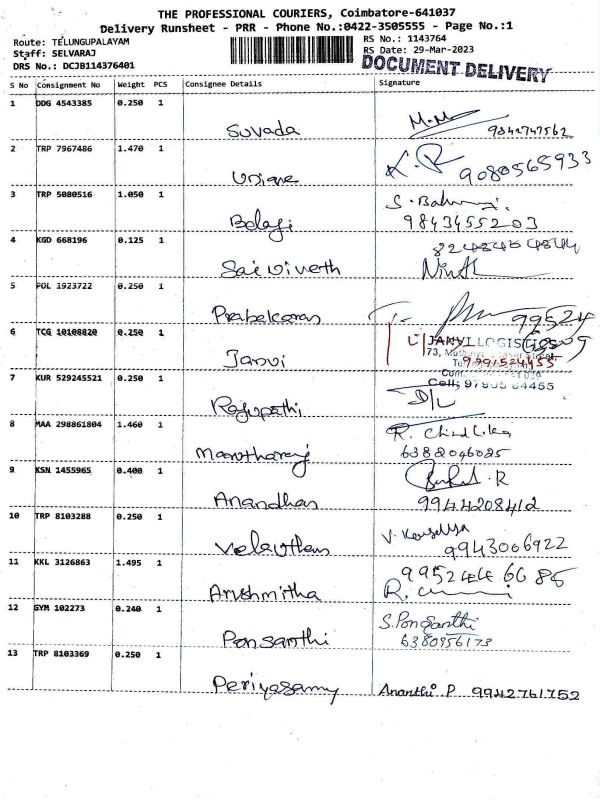 THE PROFESSIONAL COURIERS, Coimbatore-641037
Delivery Runsheet - PRR - Phone No.:0422-3505555 - Page No.:1
Route: TELUNGUPALAYAM
Staff: SELVARAJ
DRS No.: DCJB114376401
RS No.: 1143764
RS Date: 29-Mar-2023
DOCUMENT DELIVERY
S No Consignment No Weight PCS Consignee Details Signature
1 DDG 4543385 0.250 1
Suvada 9842747562
2 TRP 7967486 1.470 1
Unique 9080565933
3 TRP 5080516 1.050 1
Balaji 9843455203
4 KGD 668196 0.125 1
Sai Vineth
5 POL 1923722 0.250 1
Prabakaran 99524
6 TCG 10108820 0.250 1
Janvi
JANVI LOGISTICS
7 KUR 529245521 0.250 1
Rajupathi
8 MAA 298861804 1.460 1
Marutharaj 6388046085
9 KSN 1455965 0.400 1
Anandhan 9944208412
10 TRP 8103288 0.250 1
Velauthan V. Kausalya 9943006922
11 KKL 3126863 1.495 1
Arushmitha
12 GYM 102273 0.240 1
Ponsanthi S. Ponsanthi
6380956173
13 TRP 8103369 0.250 1
Periyasamy Ananthi P 9942761752